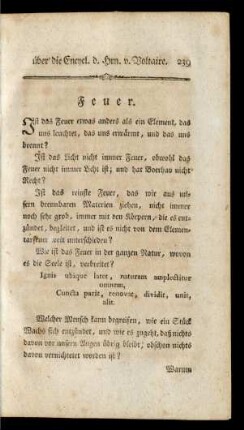 über die Encycl. d. Hrn. v. Voltaire. 239
Feuer.
Ist das Feuer etwas anders als ein Element, das
uns leuchtet, das uns erwärmt, und das uns
brennt?
Ist das Licht nicht immer Feuer, obwohl das
Feuer nicht immer Licht ist; und hat Boerhav nicht
Recht?
Ist das reinste Feuer, das wir aus un-
sern brennbaren Materien ziehen, nicht immer
noch sehr grob, immer mit den Körpern, die es ent-
zündet, begleitet, und ist es nicht von dem Elemen-
tarfeuer weit unterschieden?
Wie ist das Feuer in der ganzen Natur, wovon
es die Seele ist, verbreitet?
Ignis ubique latet, naturam amplectitur
omnem,
Cuncta parit, renovat, dividit, unit,
alit.
Welcher Mensch kann begreifen, wie ein Stück
Wachs sich entzündet, und wie es zugeht, daß nichts
davon vor unsern Augen übrig bleibt; obschon nichts
davon vernichtet worden ist?
Warum